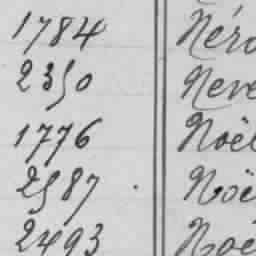 1784 Néro
2350 Neve
1776 Noël
2587 Noë
2493 Noë